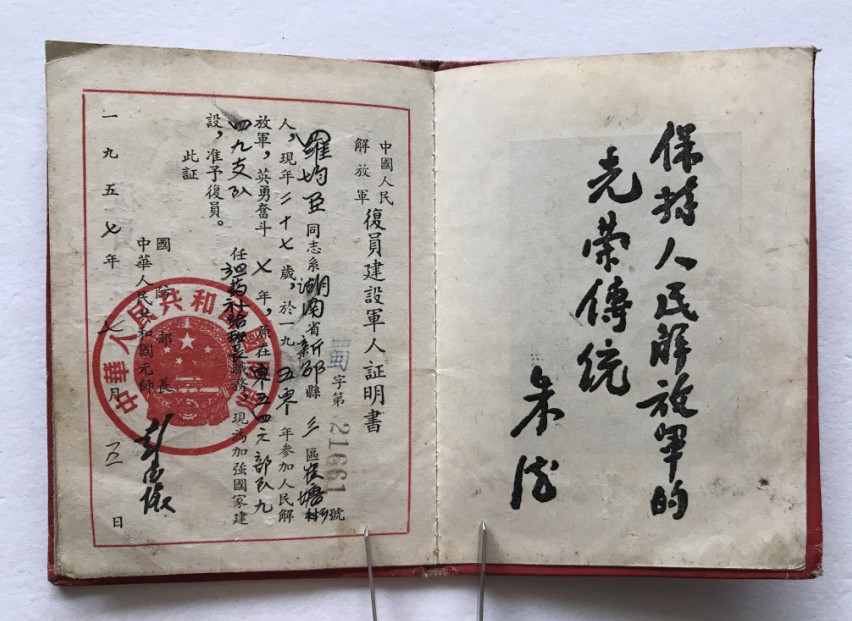 保持人民解放軍的
光荣傳统
朱德
中國人民
解放軍
復員建設軍人証明書
蜀字第21661號
羅均亞同志系湖南省新邵縣三區塘村
人,現年二十七歲,於一九五零年參加人民解
放軍,英勇奮斗七年,原在五四六部队九
四九支队任職務,現為加強國家建
設,准予復員。
此証
國防部長
中華人民共和國元帥 彭德懷
一九五七年七月日
中華人民共和